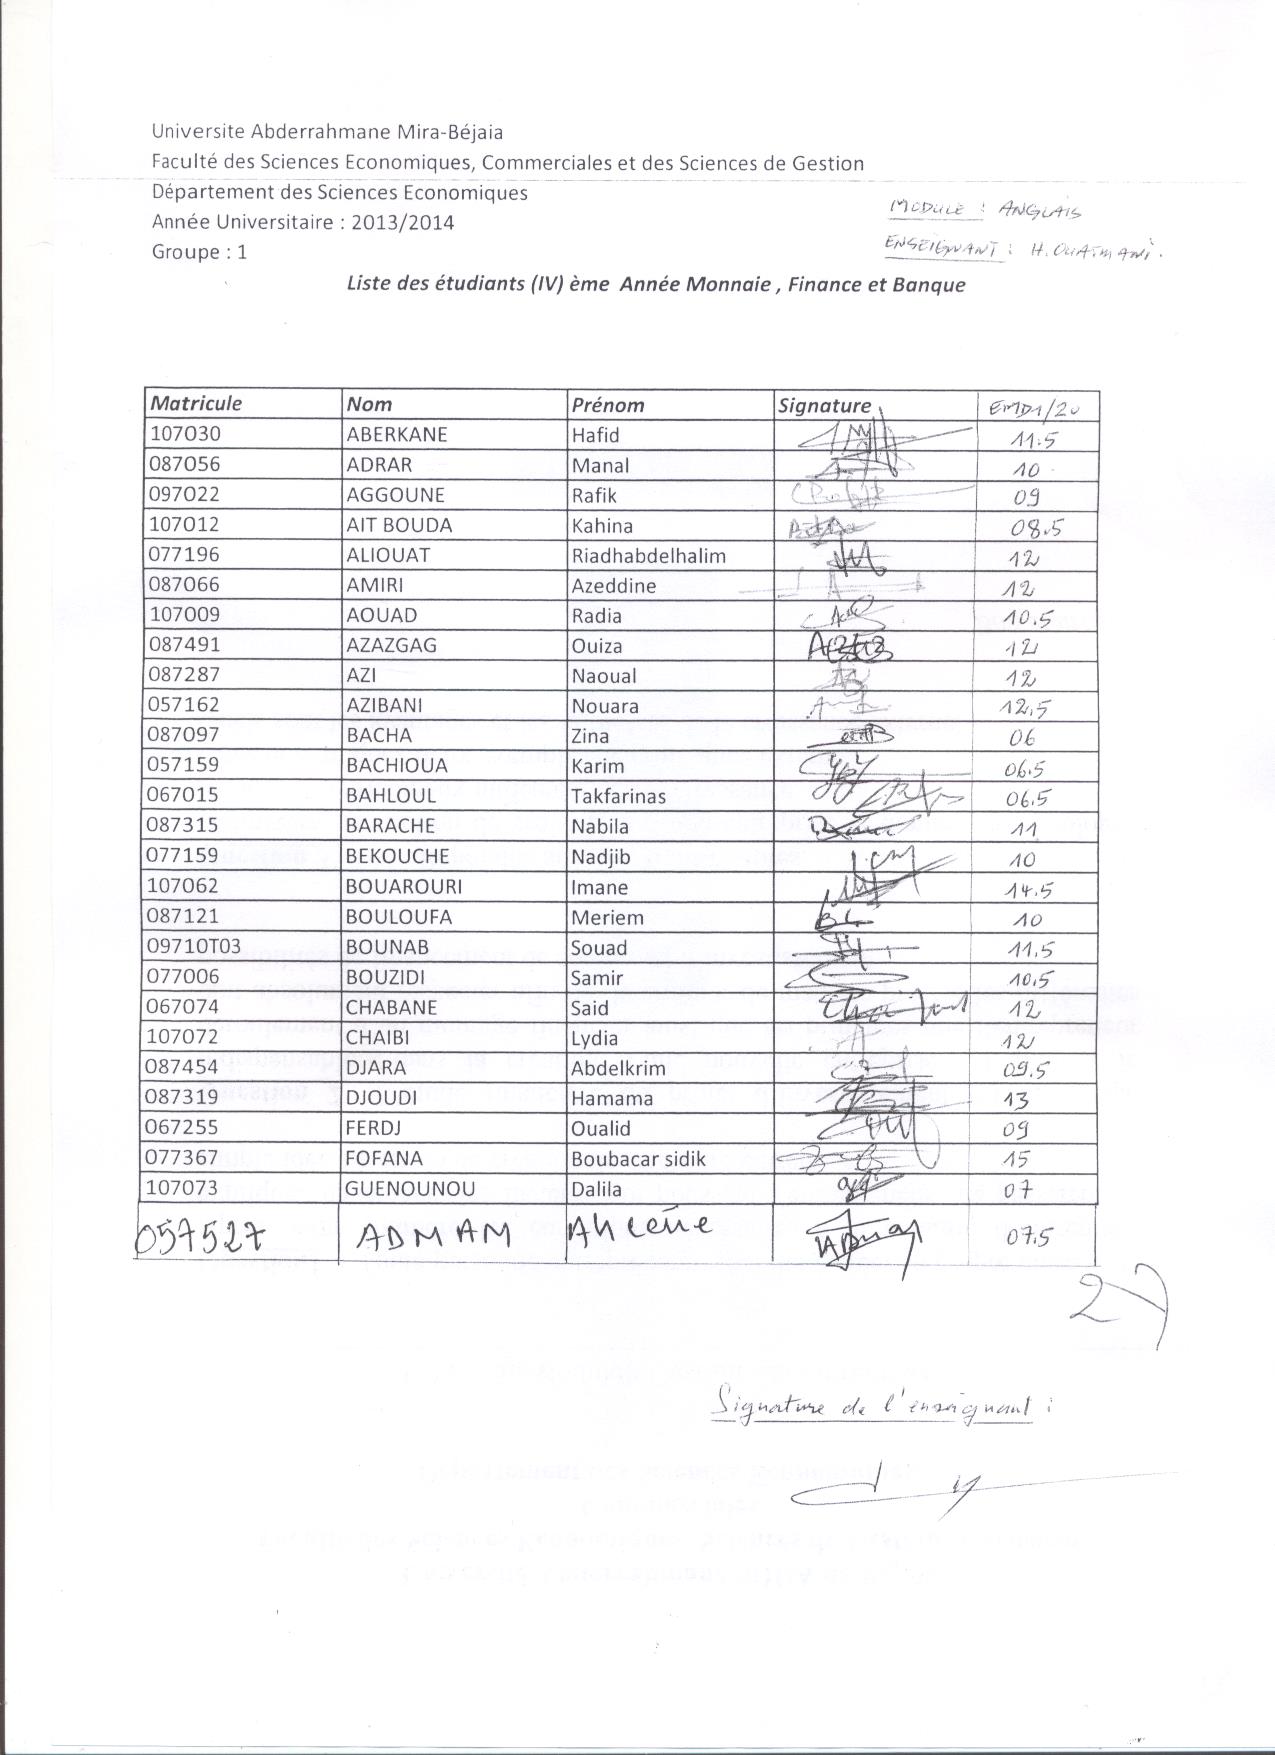 Universite Abderrahmane Mira-Béjaia
Faculté des Sciences Economiques, Commerciales et des Sciences de Gestion
Département des Sciences Economiques
Année Universitaire : 2013/2014
MODULE : ANGLAIS
Groupe : 1
ENSEIGNANT : H.
Liste des étudiants (IV) ème Année Monnaie , Finance et Banque
Matricule Nom Prénom Signature EMD1/20
107030 ABERKANE Hafid 11.5
087056 ADRAR Manal 10
097022 AGGOUNE Rafik 09
107012 AIT BOUDA Kahina 08.5
077196 ALIOUAT Riadhabdelhalim 12
087066 AMIRI Azeddine 12
107009 AOUAD Radia 10.5
087491 AZAZGAG Ouiza 12
087287 AZI Naoual 12
057162 AZIBANI Nouara 12,5
087097 BACHA Zina 06
057159 BACHIOUA Karim 06.5
067015 BAHLOUL Takfarinas 06.5
087315 BARACHE Nabila 11
077159 BEKOUCHE Nadjib 10
107062 BOUAROURI Imane 14.5
087121 BOULOUFA Meriem 10
09710T03 BOUNAB Souad 11.5
077006 BOUZIDI Samir 10.5
067074 CHABANE Said 12
107072 CHAIBI Lydia 12
087454 DJARA Abdelkrim 09.5
087319 DJOUDI Hamama 13
067255 FERDJ Oualid 09
077367 FOFANA Boubacar sidik 15
107073 GUENOUNOU Dalila 07
057527 ADMAM Ahcène 07.5
27
Signature de l'enseignant :